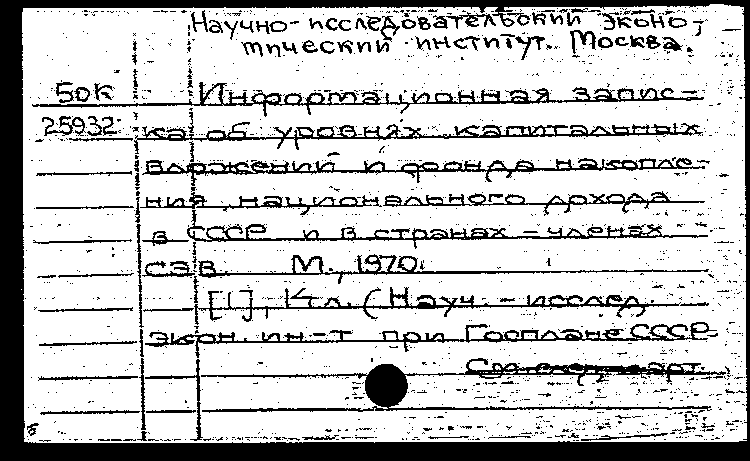 Научно-исследовательский эконо-
мический институт. Москва.
Бок Информационная запис-
25932 ка об уровнях капитальных
вложений и фонда накопле-
ния национального дохода
в СССР и в странах - членах
СЭВ. М., 1970.
[1], 1 л. (Науч.-исслед.
экон. ин-т при Госплане СССР
См. след. карт.